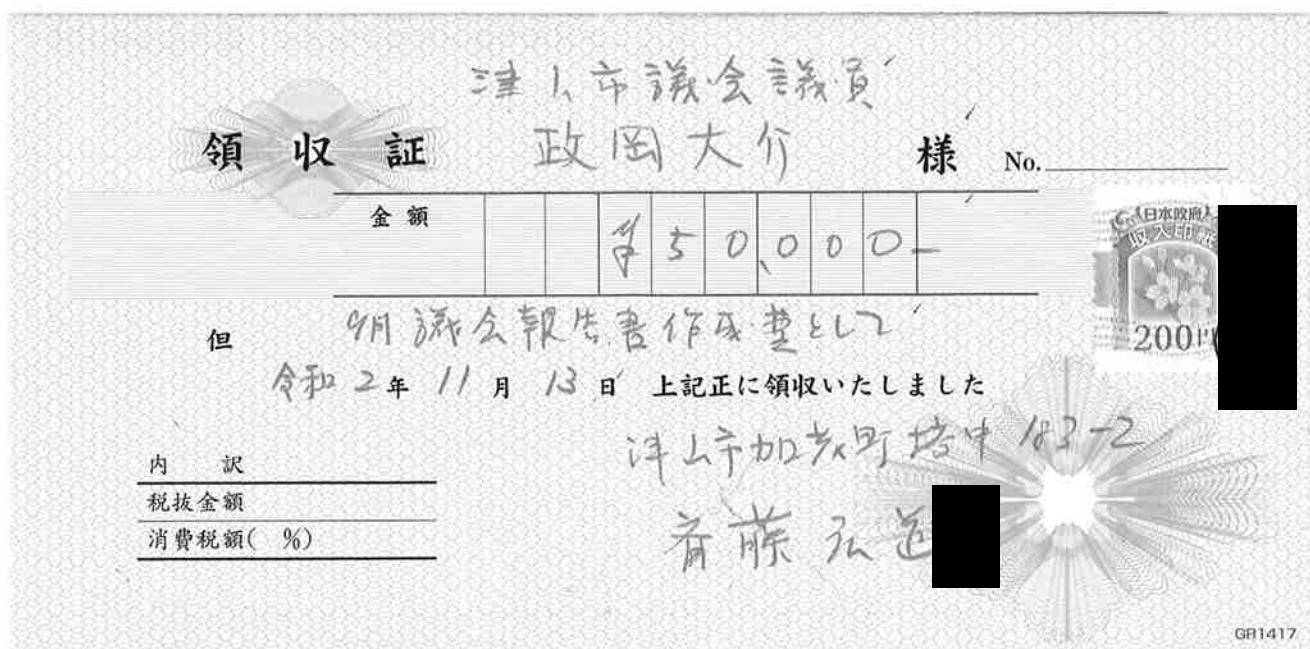 津山市議会議員
領収証 政岡大介 様 No.
金額 ¥50,000-
日本政府
収入印紙
200円
但 9月議会報告書作成費として
令和2年11月13日 上記正に領収いたしました
津山市加茂町塔中183-2
内訳
税抜金額
消費税額( %)
斉藤弘道
GR1417